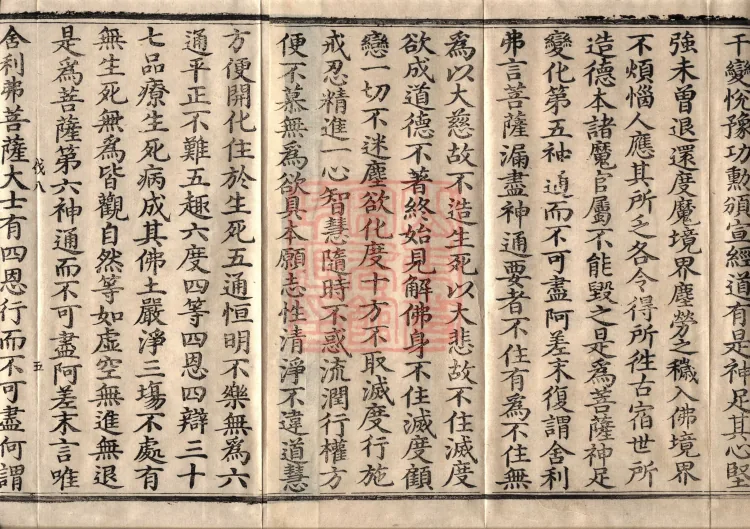 千變悅豫功勲頒宣經道有是神足其心堅
強未曾退還度魔境界塵勞之穢入佛境界
不煩惱人應其所乏各令得所徃古宿世所
造德本諸魔官屬不能毀之是為菩薩神足
變化第五神通而不可盡阿差末復謂舍利
弗言菩薩漏盡神通要者不住有為不住無
為以大慈故不造生死以大悲故不住滅度
欲成道德不著終始見解佛身不住滅度顧
戀一切不迷塵欲化度十方不取滅度行施
戒忍精進一心智慧隨時不惑流潤行權方
便不慕無為欲具本願志性清淨不違道慧
方便開化住於生死五通恒明不樂無為六
通平正不難五趣六度四等四恩四辯三十
七品療生死病成其佛土嚴淨三場不處有
無生死無為皆觀自然等如虛空無進無退
是為菩薩第六神通而不可盡阿差末言唯
伐八 五
舍利弗菩薩大士有四恩行而不可盡何謂